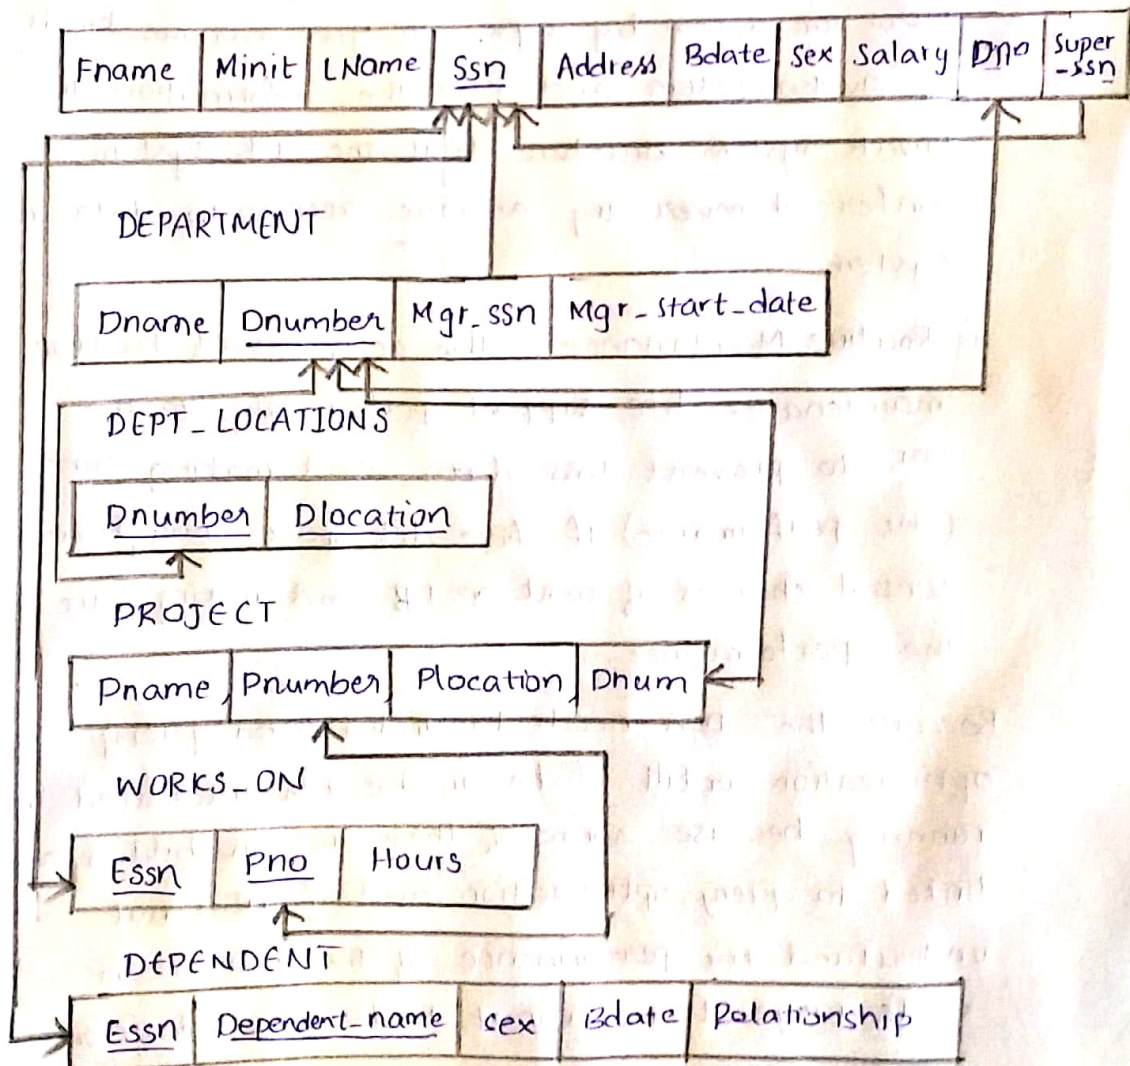 Fname Minit LName Ssn Address Bdate Sex Salary Dno Super
-ssn
DEPARTMENT
Dname Dnumber Mgr_ssn Mgr_start_date
DEPT_LOCATIONS
Dnumber Dlocation
PROJECT
Pname Pnumber Plocation Dnum
WORKS_ON
Essn Pno Hours
DEPENDENT
Essn Dependent_name sex Bdate Relationship